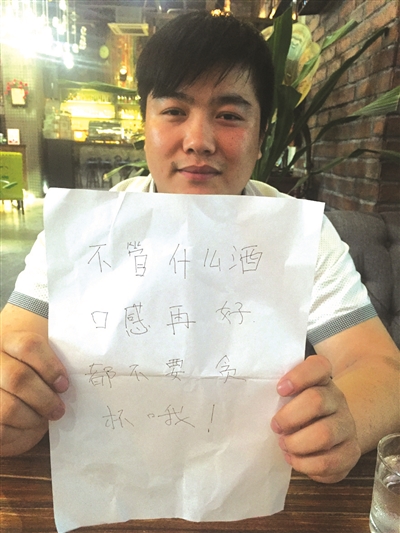 不管什么酒
口感再好
都不要贪
杯哦！